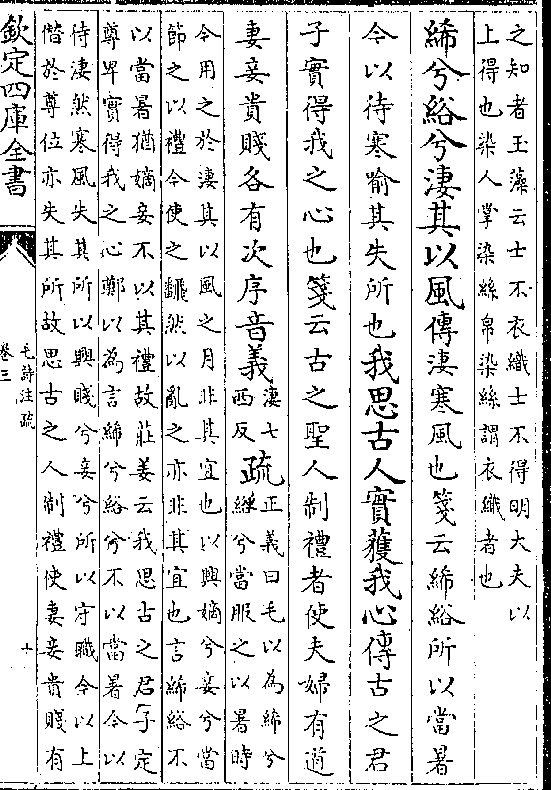 之知者玉藻云士不衣織士不得明大夫以
上得也染人掌染絲帛染絲謂衣織者也
絺兮綌兮淒其以風傳淒寒風也箋云絺綌所以當暑
今以待寒喻其失所也我思古人實獲我心傳古之君
子實得我之心也箋云古之聖人制禮者使夫婦有道
妻妾貴賤各有次序音義淒七西反疏正義曰毛以為絺兮綌兮當服之以暑時
今用之於淒其以風之月非其宜也以興嫡兮妾兮當
節之以禮今使之翻然以亂之亦非其宜也言絺綌不
以當暑猶嫡妾不以其禮故莊姜云我思古之君子定
尊卑實得我之心鄭以為言絺兮綌兮不以當暑今以
待淒然寒風失其所以興賤兮妾兮所以守職今以上
僭於尊位亦失其所故思古之人制禮使妻妾貴賤有
欽定四庫全書
毛詩注疏
卷三
十